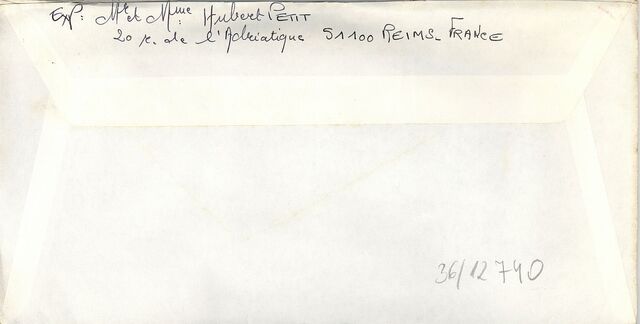 EXP: Mr et Mme Hubert PETIT
20 r. de l'Adriatique 51100 REIMS_ FRANCE
36/12740